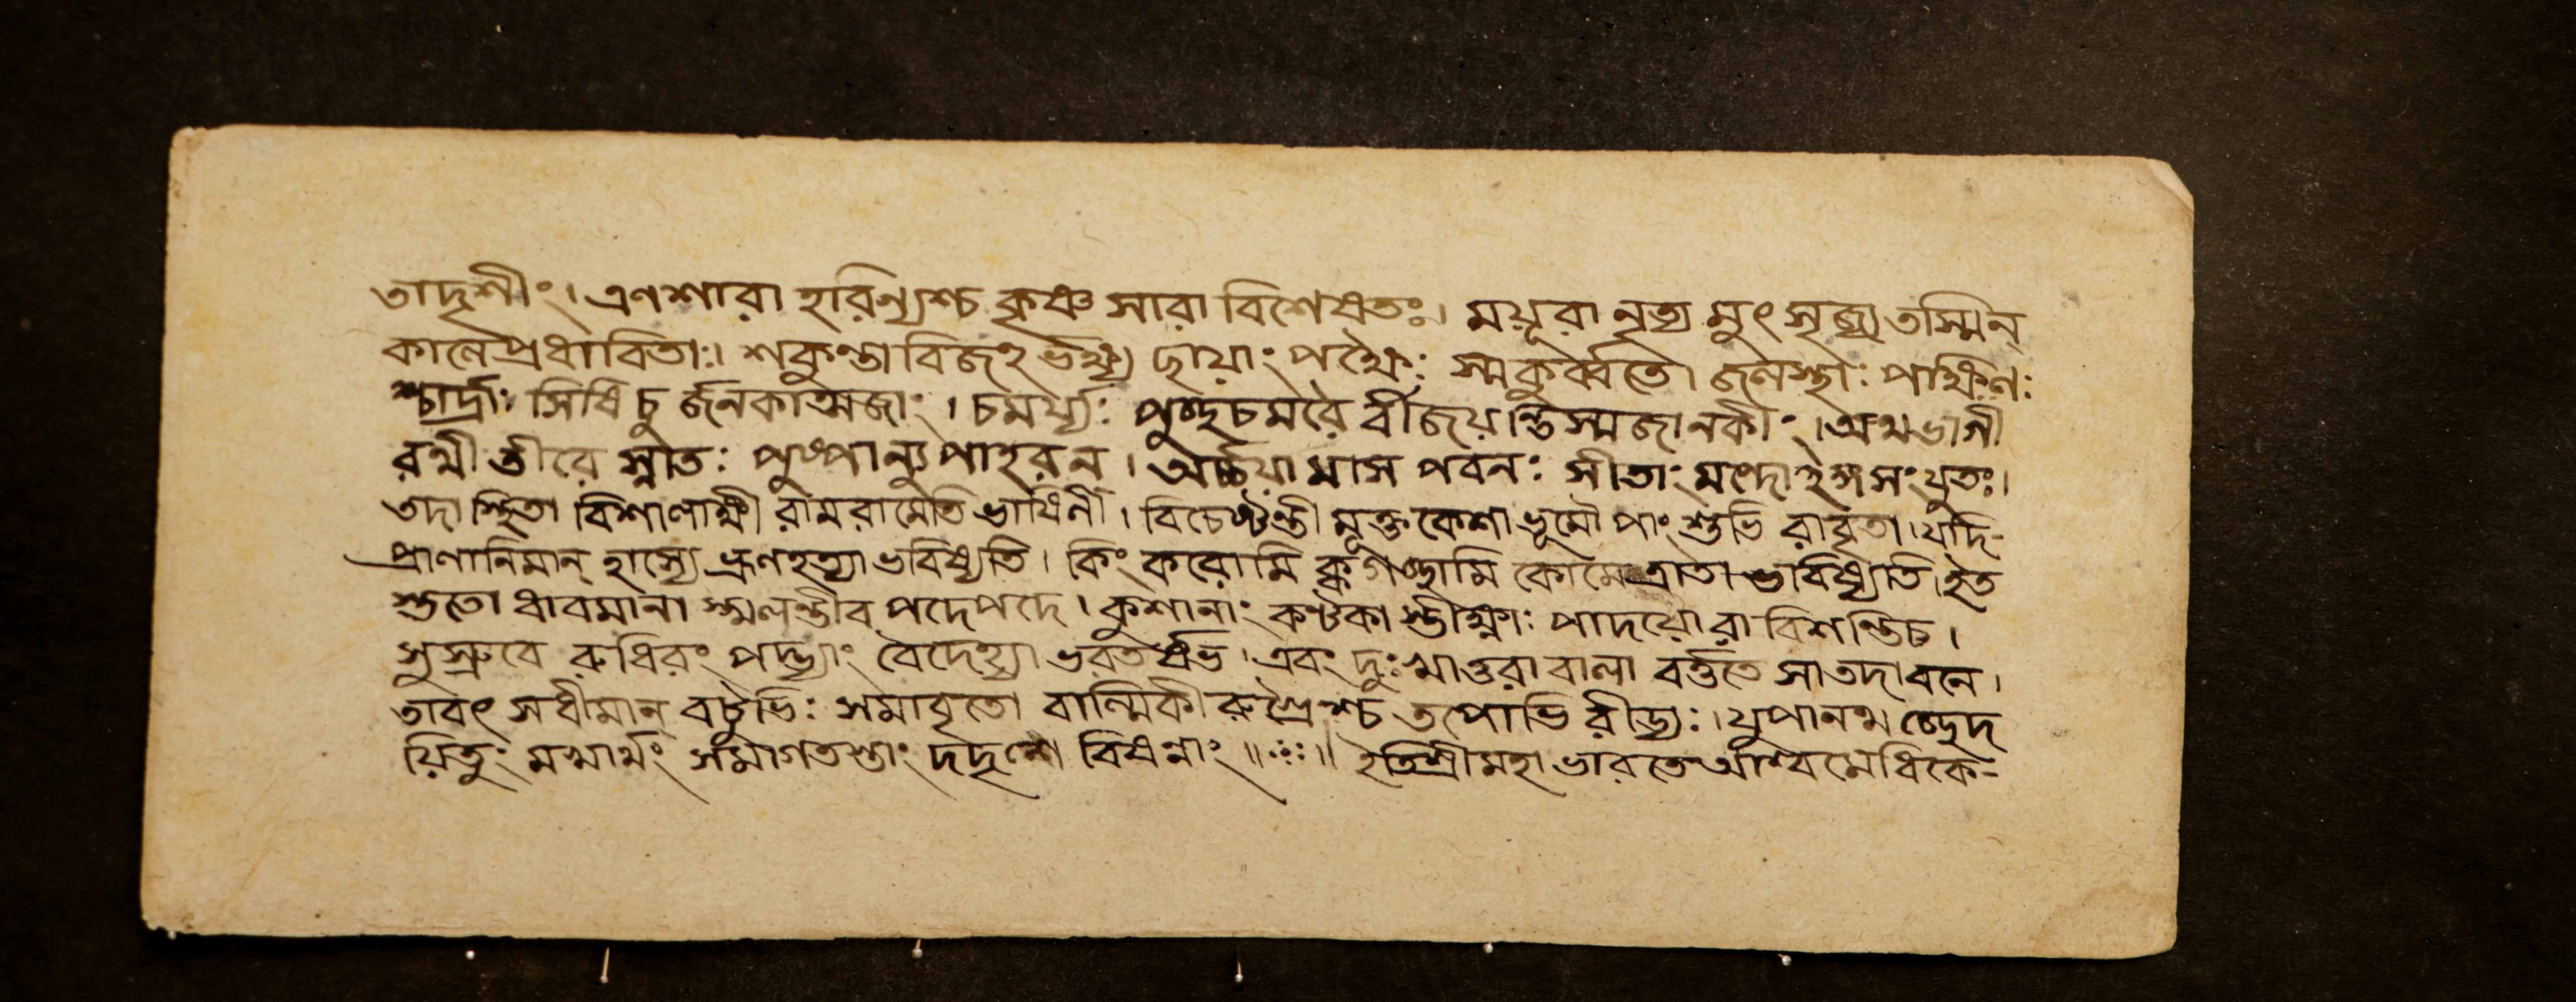 তাদৃশীং। এণশারা হরিন্যশ্চ কৃষ্ণ সারা বিশেষতঃ। ময়ূরা নৃত্য মুৎ সৃজ্য তস্মিন্
কালেপ্রধাবিতাঃ। শকুন্তা বিজহ র্ভক্ষ্য ছায়াং পক্ষৈঃ স্মকুর্ব্বতে। জলস্থাঃ পক্ষিণঃ
শ্চার্দ্রাঃ সিষিচু র্জনকাত্মজাং। চমর্য্যঃ পুচ্ছচমরৈ র্বীজয়ন্তিস্মজানকীং। অথভাগী
রথী তীরে স্নাতঃ পুষ্পান্যুপাহরন্। অর্চ্চয়ামাস পবনঃ সীতাং মন্দোহঙ্গসংযুতঃ।
তদা স্থিতা বিশালাক্ষী রামরামেতি ভাষিনী। বিচেষ্টন্তী মূক্ত কেশা ভূমৌ পাংশুভি রাবৃতা। যদি-
প্রাণানিমান্ হাস্যে ভ্রূণহত্যা ভবিষ্যতি। কিং করোমি ক্কগচ্ছামি কোমেত্রাতা ভবিষ্যতি। ইত
শ্ততো ধাবমানা স্খলন্তীব পদেপদে। কুশানাং কণ্টকা স্তীক্ষ্ণাঃ পাদয়োরা বিশন্তিচ।
সুস্রুবে রুধিরং পদ্ভ্যাং বৈদেহ্যা ভরতর্ষভ। এবং দুঃখাতুরা বালা বর্ত্ততে সাতদা বনে।
তাবৎ সধীমান্ বটুভিঃ সমাবৃতো বাল্মিকী রুগ্রৈশ্চ তপোভি রীড্যঃ। যুপানথ চ্ছেদ
য়িতুং মখার্থং সমাগতস্তাং দদৃশে বিষন্নাং॥ঃ॥ ইতিশ্রীমহাভারতে আশ্বমেধিকে-